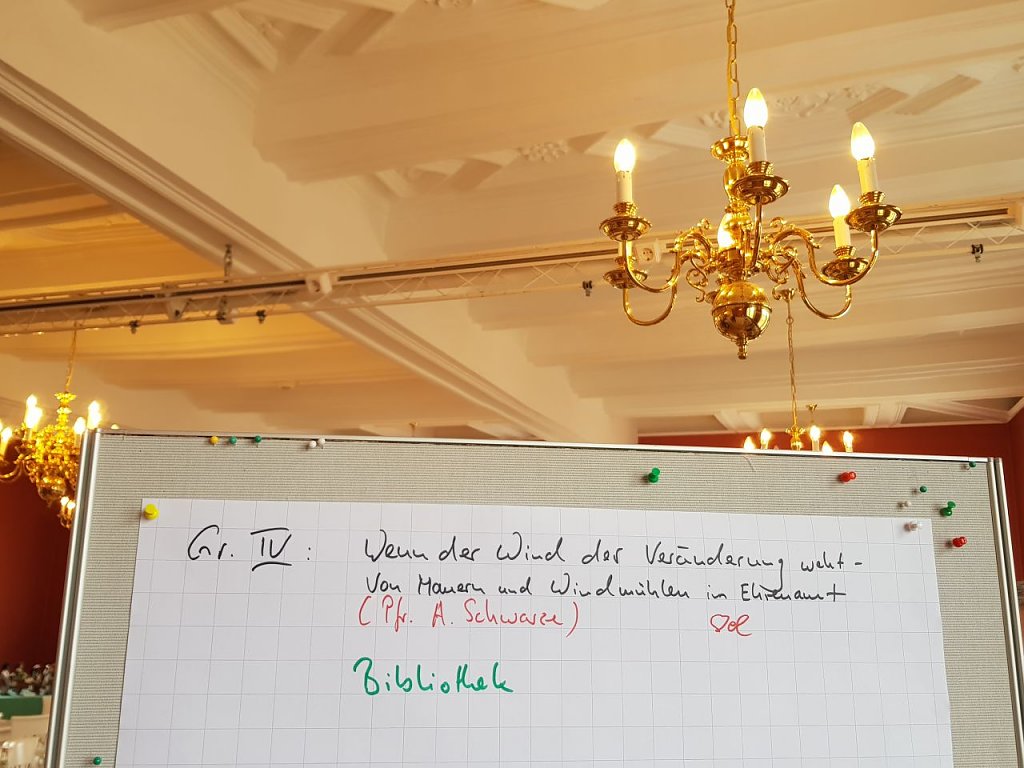 Gr. IV: Wenn der Wind der Veränderung weht -
Von Mauern und Windmühlen im Ehrenamt
(Pfr. A. Schwarze)
Bibliothek